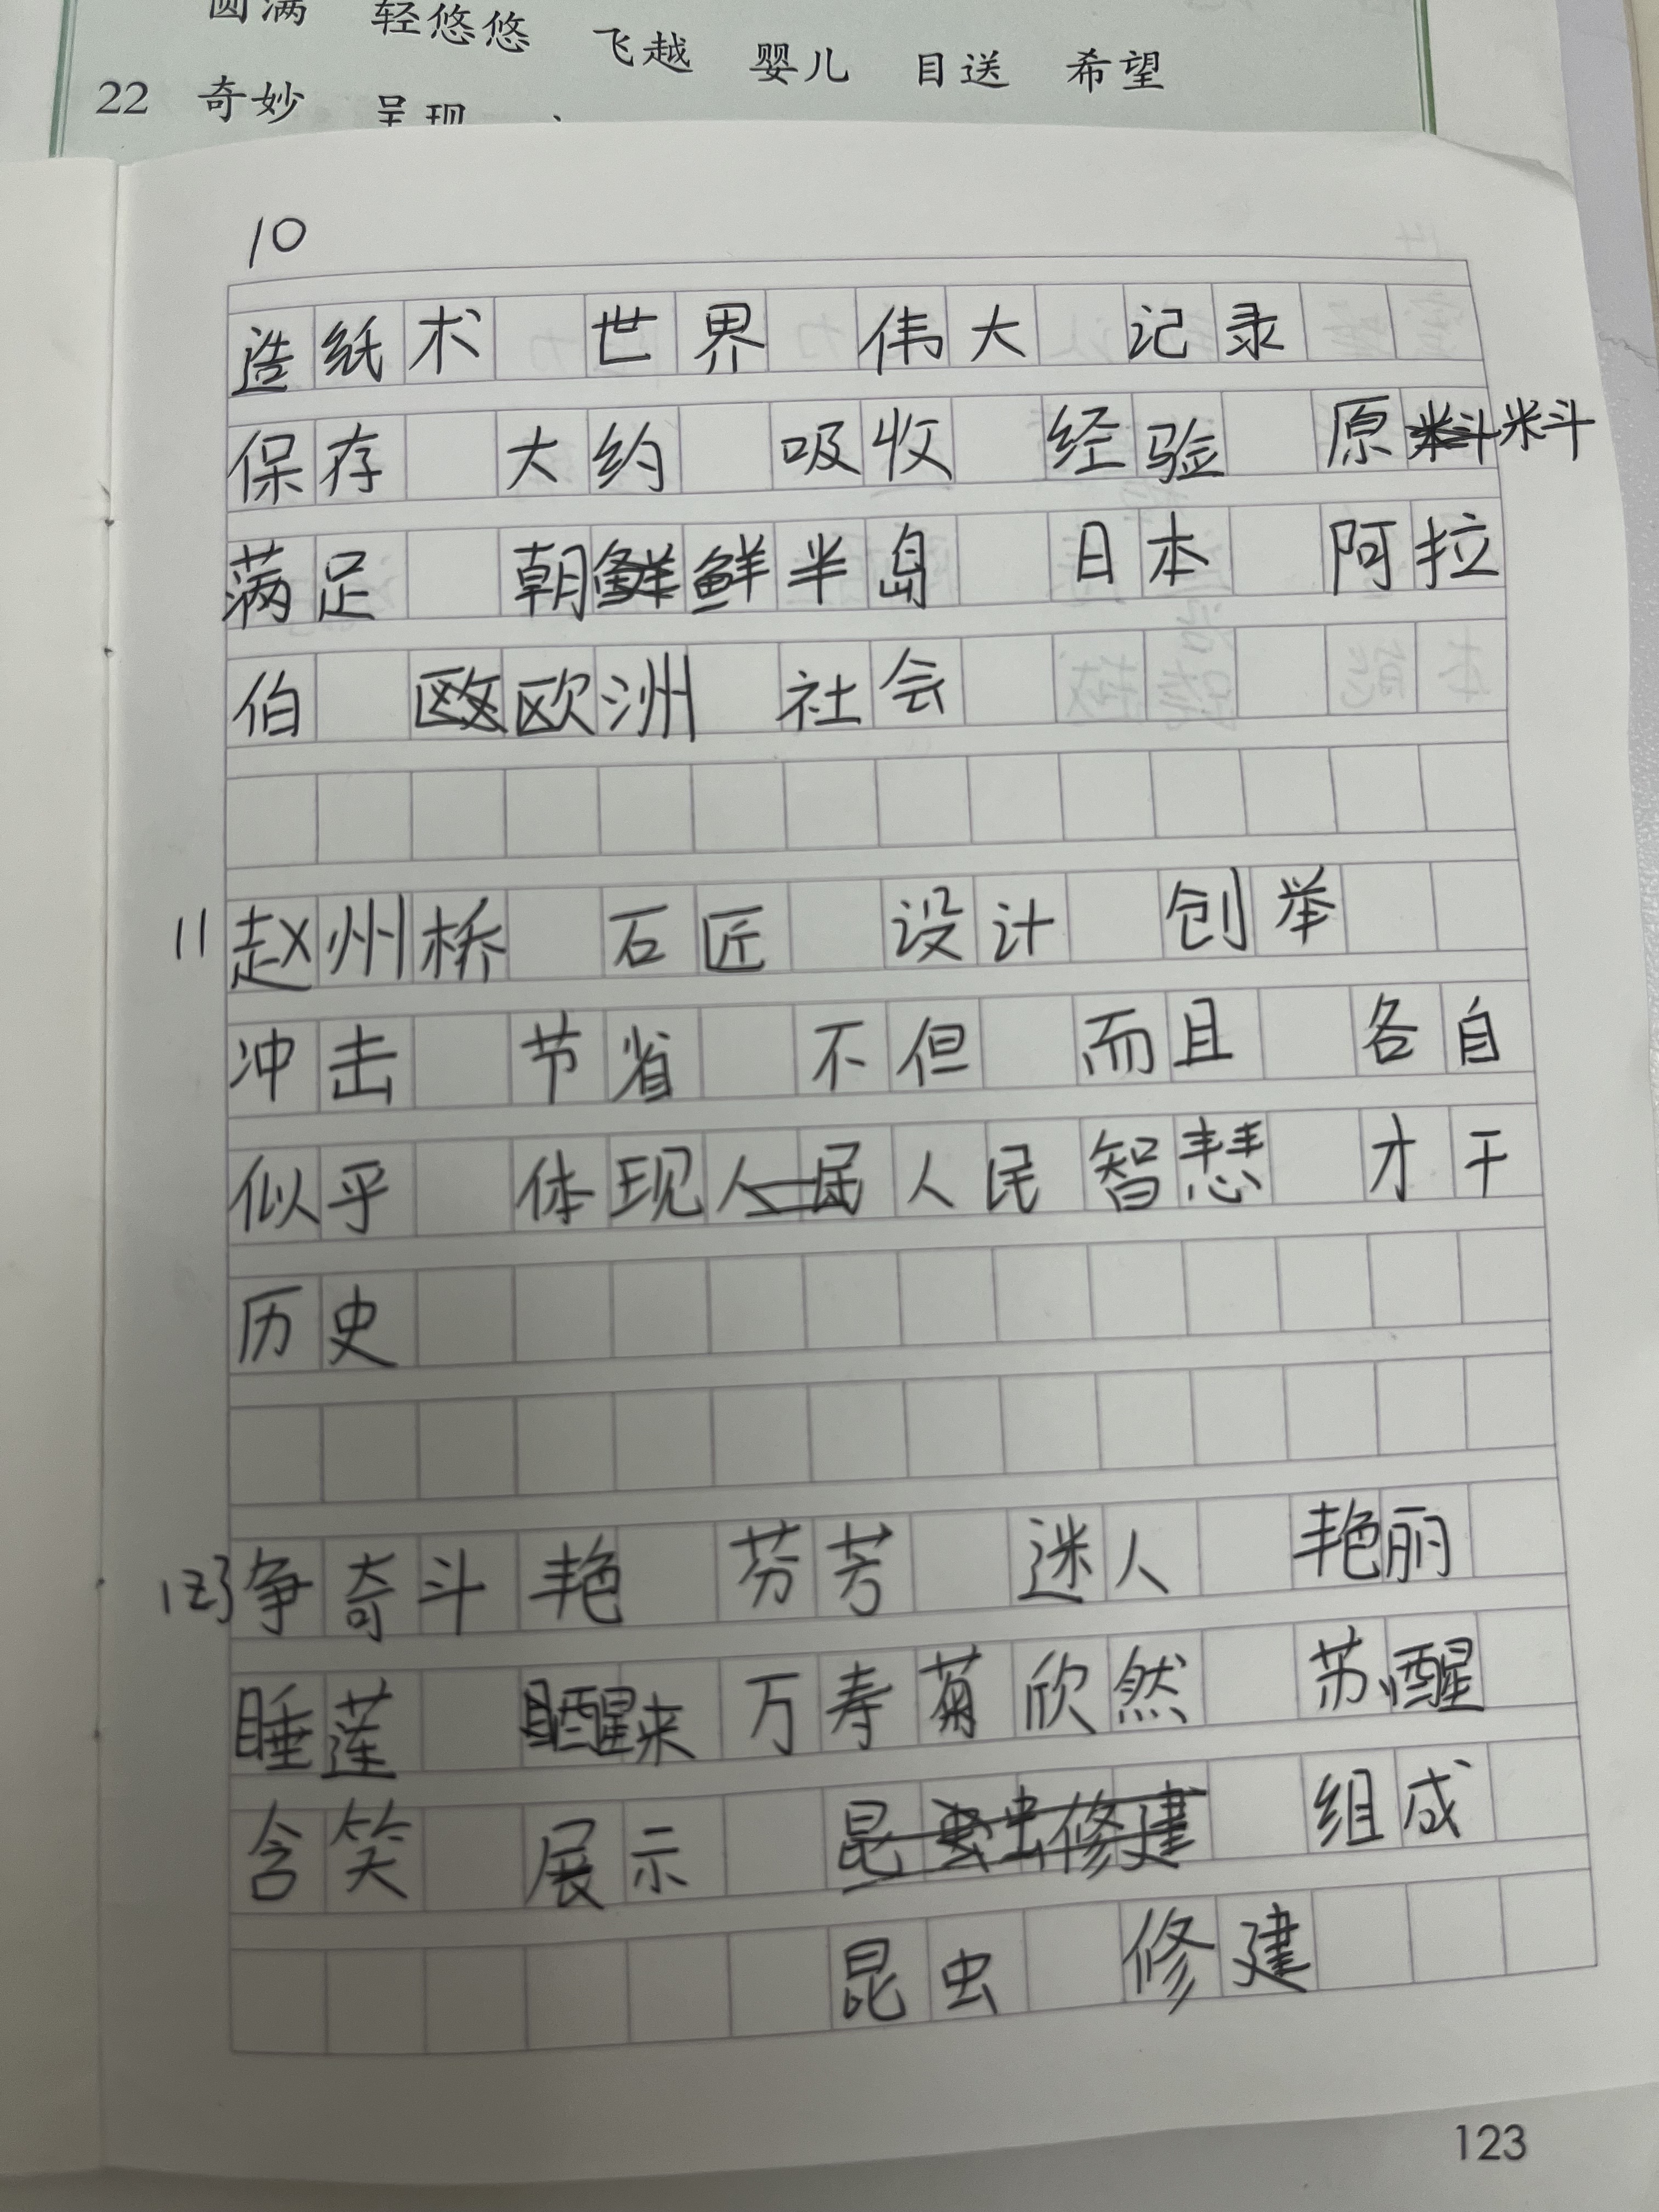 圆满 轻悠悠 飞越 婴儿 目送 希望
22 奇妙 呈现
10
造纸术 世界 伟大 记录
保存 大约 吸收 经验 原料
满足 朝鲜半岛 日本 阿拉
伯 欧洲 社会
11 赵州桥 石匠 设计 创举
冲击 节省 不但 而且 各自
似乎 体现 人民 智慧 才干
历史
争奇斗艳 芬芳 迷人 艳丽
睡莲 醒来 万寿菊 欣然 苏醒
含笑 展示 昆虫修建 组成
昆虫 修建
123